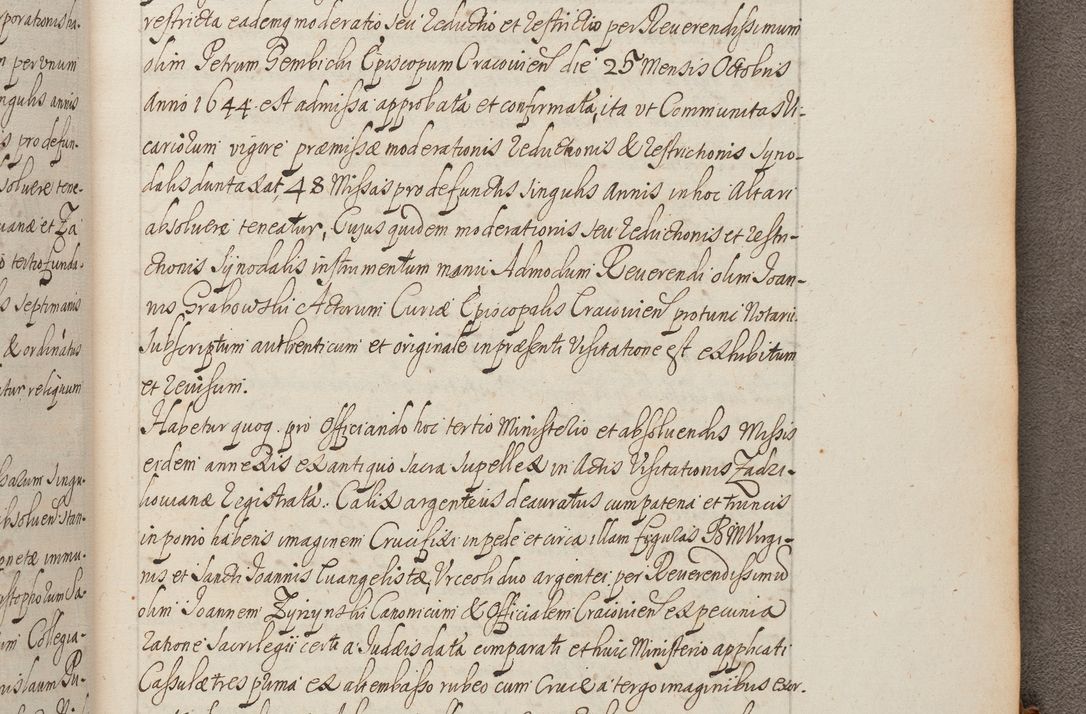 restricta eademq moderatio seu reductio et restrictio per Reuerendissimum
olim Petrum Gembicki Episcopum Cracouien die 25 Mensis Octobris
Anno 1644 est admissa approbata et confirmata, ita vt Communitas Vi-
cariorum vigore præmissæ moderationis reductionis & restrictionis Syno-
dalis duntaxat, 48 Missas pro defunctis singulis Annis in hoc Altari
absoluere teneatur, Cujus quidem moderationis seu reductionis et restri-
ctionis Synodalis instrumentum manu Admodum Reuerendi olim Joan-
nis Grabowski Actorum Curiæ Episcopalis Cracouien protunc Notarii
subscriptum authenticum et originale in præsenti Visitatione est exhibitum
et reuisum.
Habetur quoq. pro officiando hoc tertio Ministerio et absoluendis Missis
eidem annexis ex antiquo sacra supellex in Actis Visitationis Zadzi-
kouianæ registrata. Calix argenteus deauratus cum patena et truncis
in pomo habens imaginem Crucifixi in pede et circa illam figuras B M Virgi-
nis et Sancti Joannis Euangelistæ, Vrceoli duo argentei per Reuerendissimũ
olim Joannem Zyrzynski Canonicum & Officialem Cracouien ex pecunia
ratione sacrilegii certi a Judæis data comparati et huic Ministerio applicati
Cassulæ tres prima ex altembasso rubeo cum Cruce a tergo imaginibus exor-